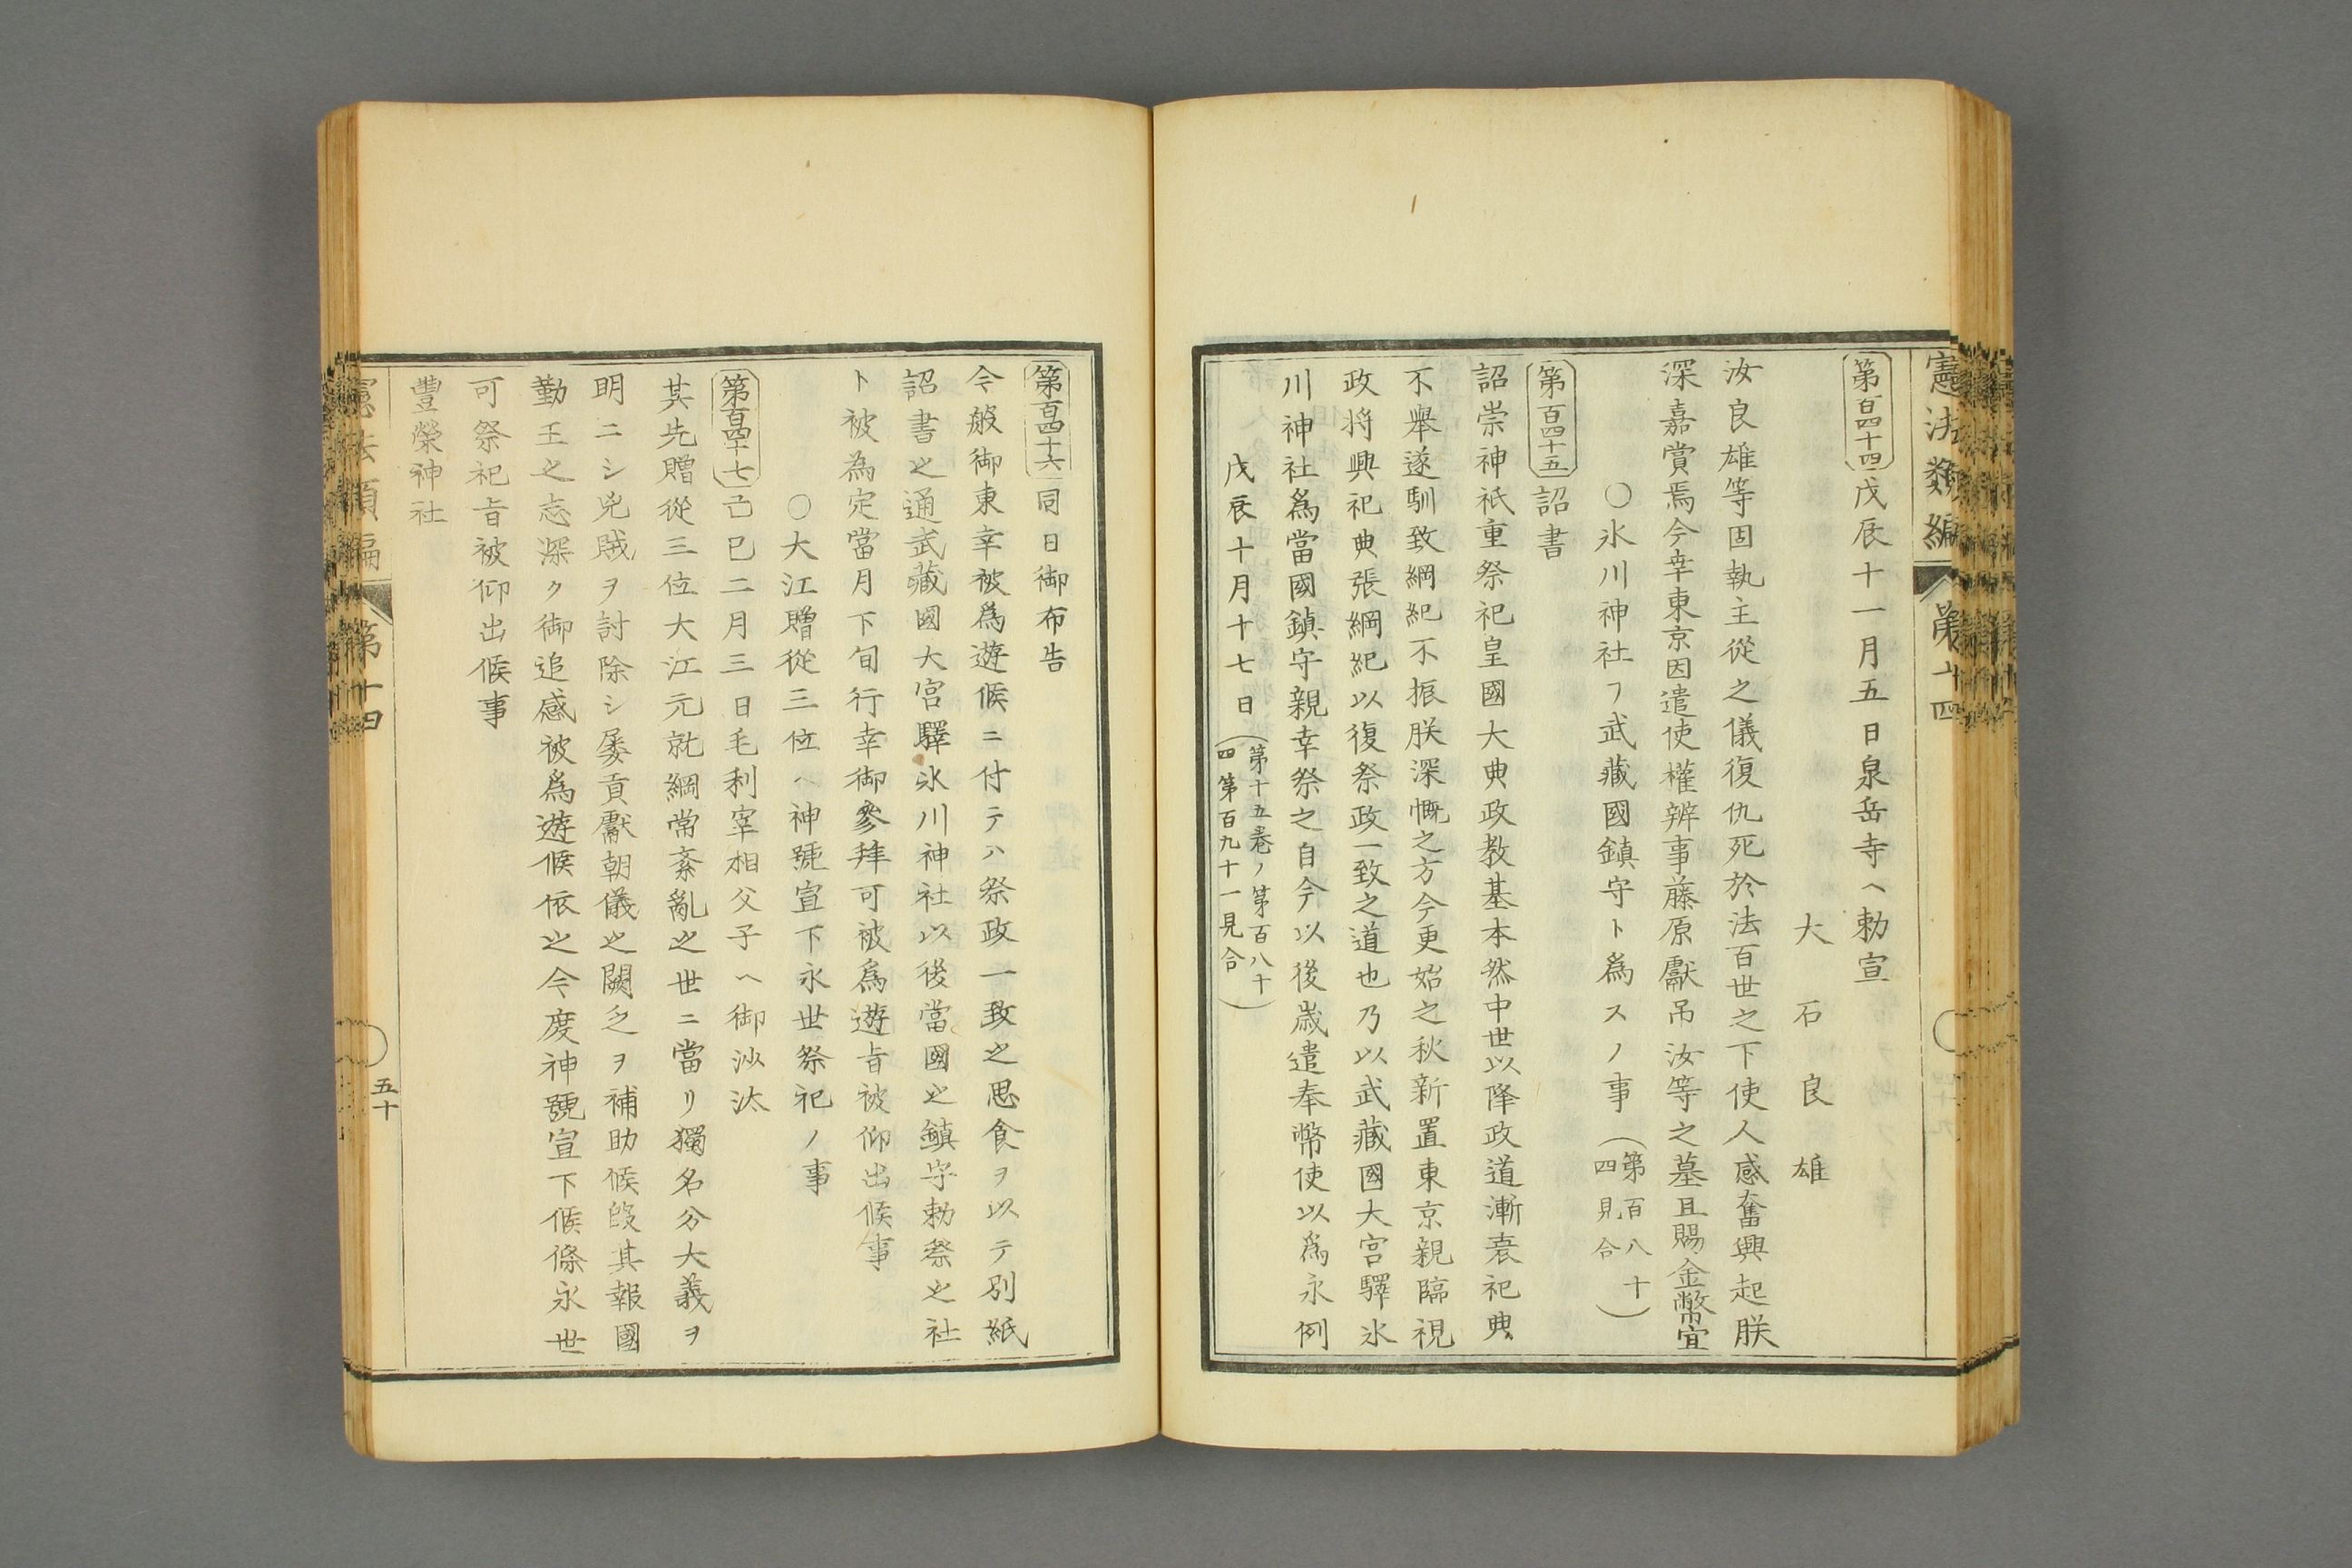 憲法類編 第十四
第百四十四 戊辰十一月五日泉岳寺ヘ勅宣
大石良雄
汝良雄等固執主從之儀復仇死於法百世之下使人感奮興起朕
深嘉賞焉今幸東京因遣使權辨事藤原獻吊汝等之墓且賜金幣宜
〇氷川神社ヲ武藏國鎮守ト爲スノ事（第百八十四見合）
第百四十五 詔書
詔崇神祇重祭祀皇國大典政教基本然中世以降政道漸衰祀典
不舉遂馴致綱紀不振朕深慨之方今更始之秋新置東京親臨視
政将興祀典張綱紀以復祭政一致之道也乃以武藏國大宮驛氷
川神社爲當國鎮守親幸祭之自今以後歳遣奉幣使以爲永例
戊辰十月十七日（第十五巻ノ第百八十四第百九十一見合）
第百四十六 同日御布告
今般御東幸被爲遊候ニ付テハ祭政一致之思食ヲ以テ別紙
詔書之通武藏國大宮驛氷川神社以後當國之鎮守勅祭之社
ト被為定當月下旬行幸御參拜可被爲遊旨被仰出候事
〇大江贈從三位ヘ神號宣下永世祭祀ノ事
第百四十七 己巳二月三日毛利宰相父子ヘ御沙汰
其先贈從三位大江元就綱常紊亂之世ニ當リ獨名分大義ヲ
明ニシ兇賊ヲ討除シ屡貢獻朝儀之闕乏ヲ補助候段其報國
勤王之志深ク御追感被爲遊候依之今度神號宣下候條永世
可祭祀旨被仰出候事
豐榮神社
憲法類編 第十四
五十